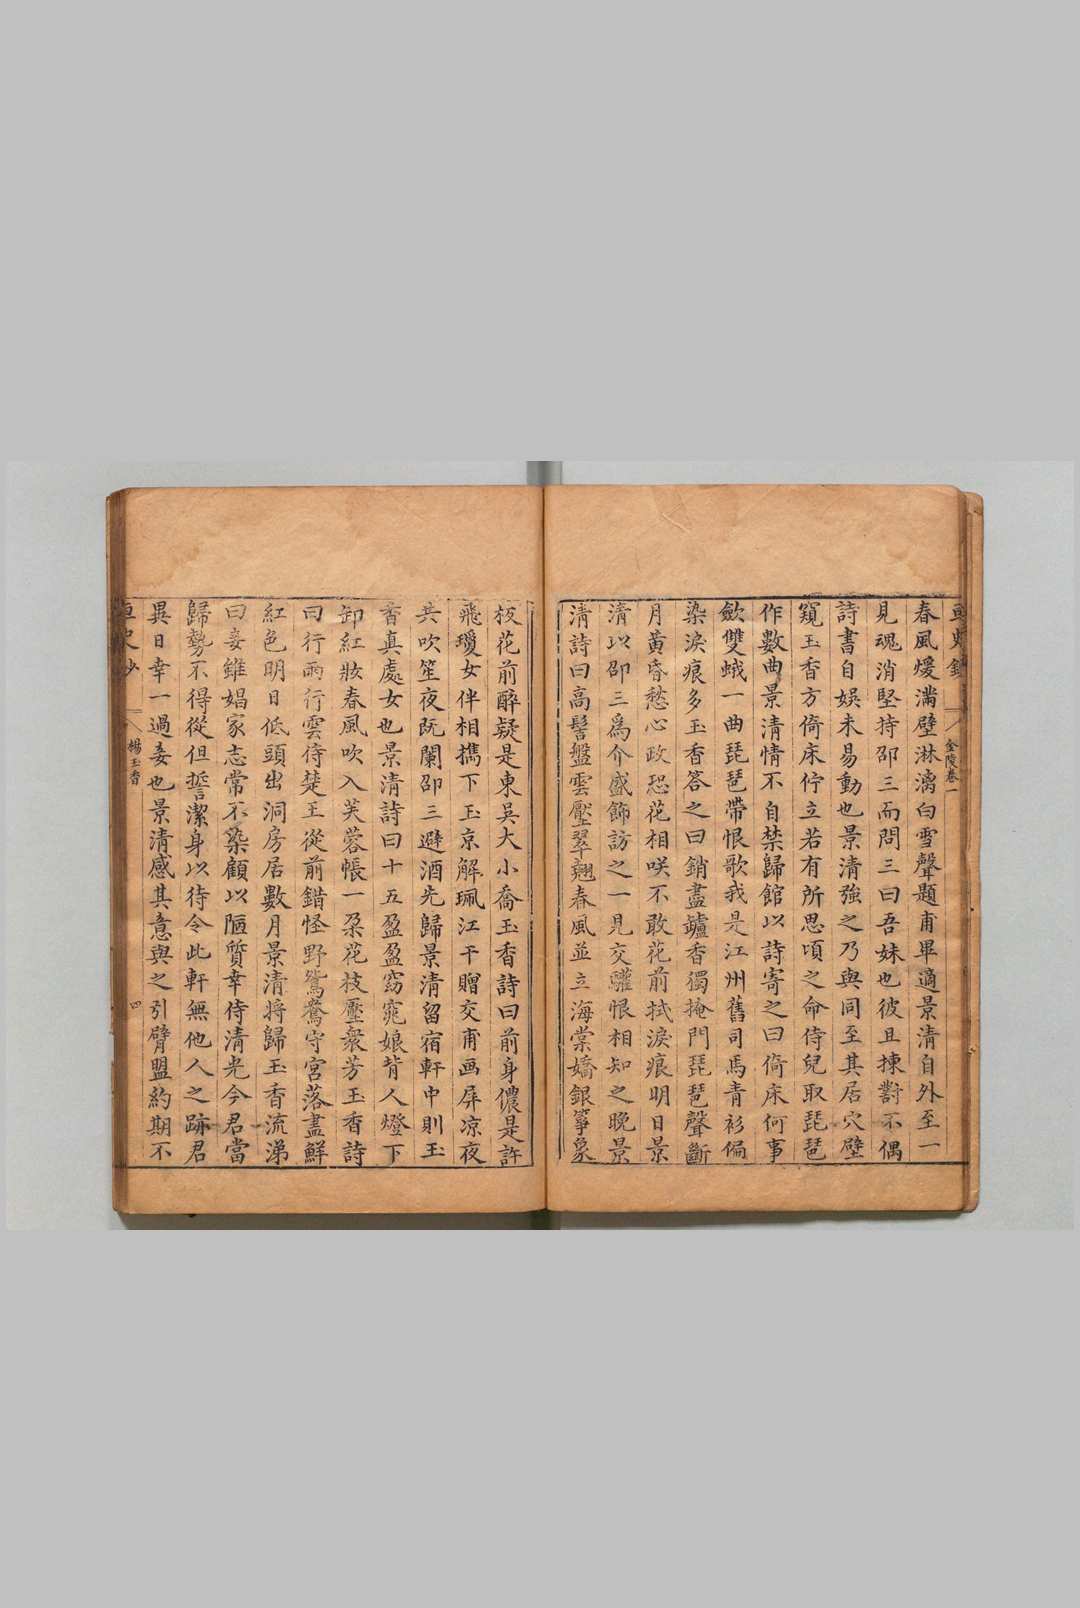 金陵卷一
春風煖滿壁淋漓白雪聲題甫畢適景清自外至一
見魂消堅持邵三而問三曰吾妹也彼且揀對不偶
詩書自娛未易動也景清強之乃與同至其居穴壁
窺玉香方倚床佇立若有所思頃之命侍兒取琵琶
作數曲景清情不自禁歸館以詩寄之曰倚床何事
歛雙蛾一曲琵琶帶恨歌我是江州舊司馬青衫偏
染淚痕多玉香答之曰銷盡鑪香獨掩門琵琶聲斷
月黃昏愁心政恐花相咲不敢花前拭淚痕明日景
清以邵三爲介盛飾訪之一見交驩恨相知之晚景
清詩曰高髻盤雲壓翠翹春風並立海棠嬌銀箏象
板花前醉疑是東吳大小喬玉香詩曰前身儂是許
飛瓊女伴相攜下玉京解珮江干贈交甫画屏凉夜
共吹笙夜旣闌邵三避酒先歸景清留宿軒中則玉
香真處女也景清詩曰十五盈盈窈窕娘背人燈下
卸紅妝春風吹入芙蓉帳一朶花枝壓衆芳玉香詩
曰行雨行雲侍楚王從前錯怪野鴛鴦守宮落盡鮮
紅色明日低頭出洞房居數月景清將歸玉香流涕
曰妾雖娼家志常不染顧以陋質幸侍清光今君當
歸勢不得從但誓潔身以待令此軒無他人之跡君
異日幸一過妾也景清感其意與之引臂盟約期不
楊玉香
四